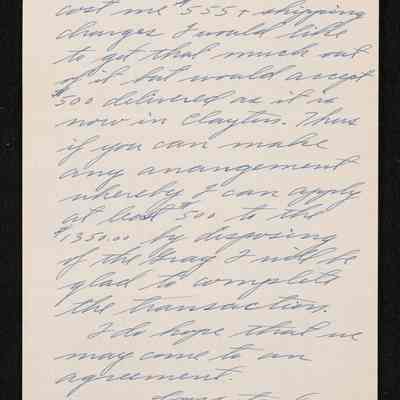 cost me $555 + shipping
charges I would like
to get that much out
of it but would accept
$500 delivered as it is
now in Clayton. Thus
if you can make
any arrangement
whereby I can apply
at least $500 to the
$1350.00 by disposing
of the Gray I will be
glad to complete
the transaction.
I do hope that we
may come to an
agreement.